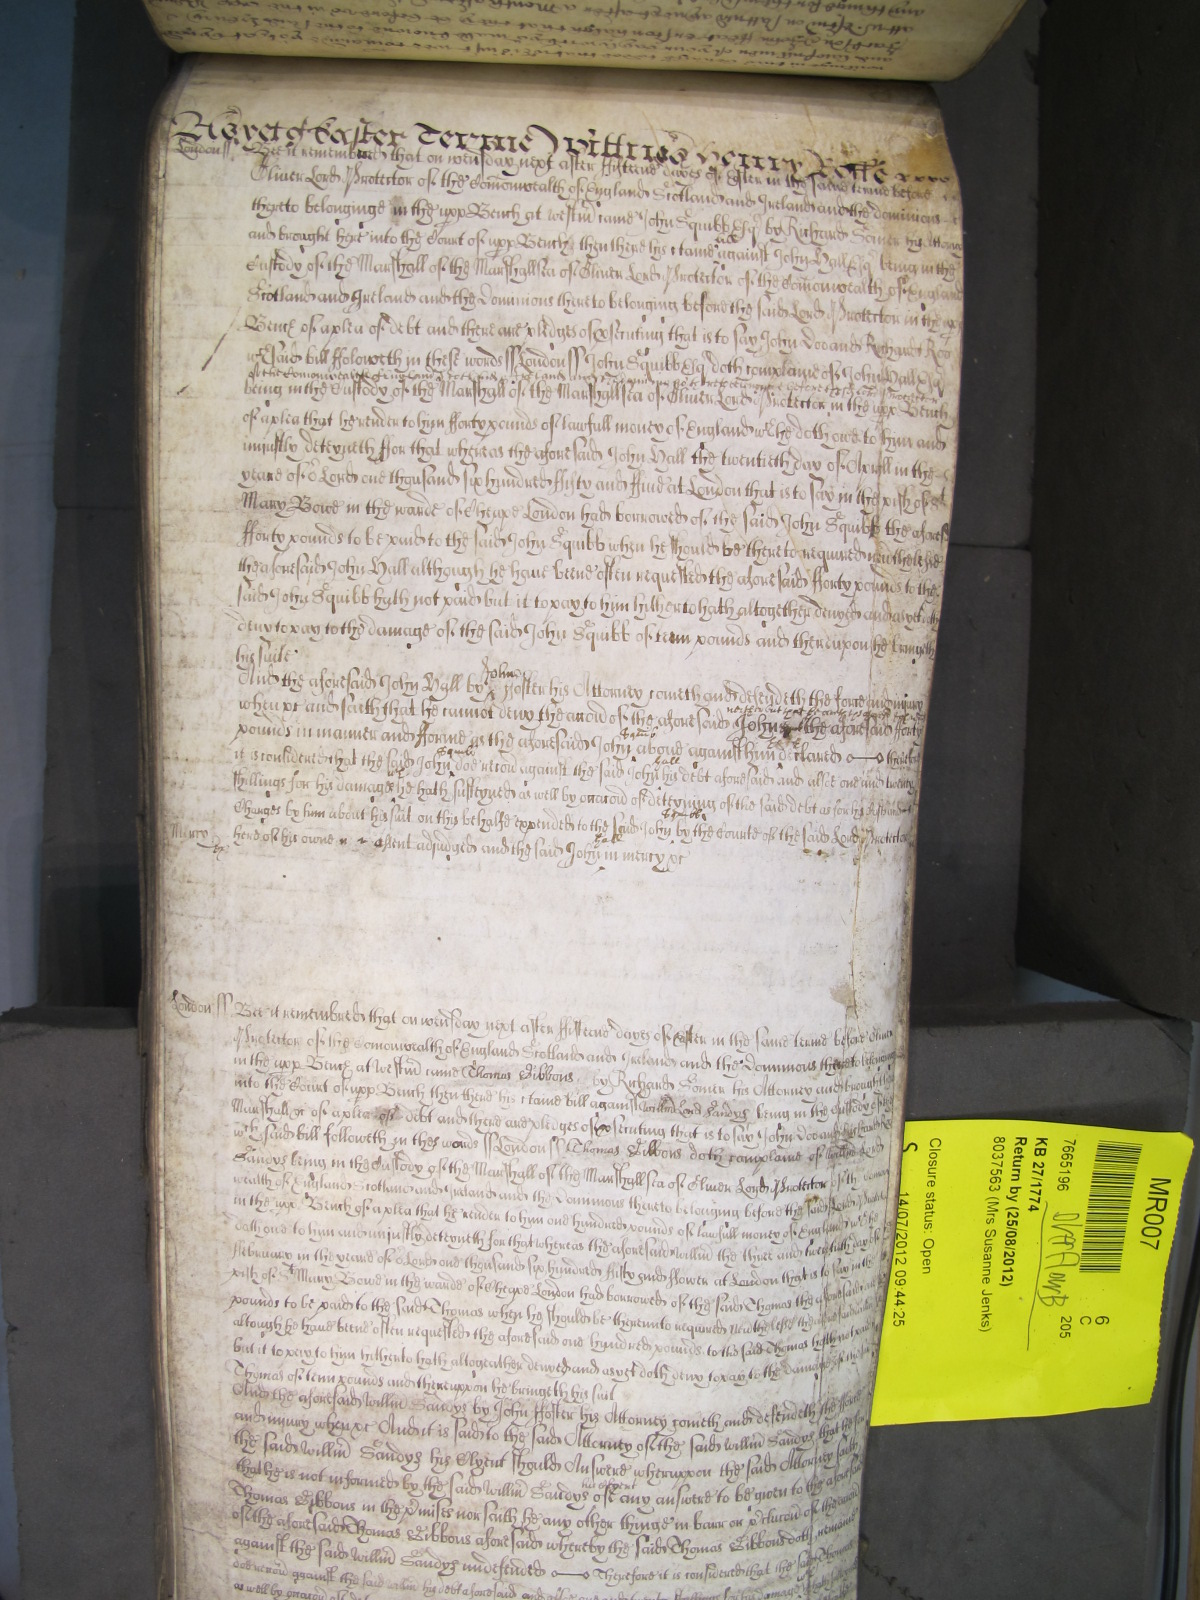 As yet of Easter Terme Wittnes Henry Rolle
London ss Bee it remembred that on wensday next after fifteene dayes of Easter in the same terme before
Oliver Lord Protector of the Comonwealth of England Scotland and Ireland and the dominions
thereto belonginge in the upp Bench at Westm came John Squibb Esq by Richard Somer his Attorney
and brought here into the Court of upp Bench then there his c tame bill against John Hall Esq being in the
Custody of the Marshall of the Marshallsea of Oliver Lord Protector of the Comonwealth of England
Scotland and Ireland and the Dominions there to belonging before the said Lord Protector in the upp
Bench of a plea of debt and there are pledges of prosecuting that is to say John Doo and Richard Roo
wch said bill ffoloweth in these words ss London ss John Squibb Esq doth complaine of John Hall Esq
of the Comonwealth of England Scotland and Ireland and the dominions thereto belonging before the said Lord Protector
being in the Custody of the Marshall of the Marshallsea of Oliver Lord Protector in the upp Bench
of a plea that he render to him fforty pounds of lawfull money of England wch he doth owe to him and
injustly deteyneth ffor that whereas the aforesaid John Hall the twentieth day of Aprill in the
yeare of or Lord one thousand six hundred ffifty and ffive at London that is to say in the pish of St
Mary Bowe in the warde of Cheape London had borrowed of the said John Squibb the aforesd
fforty pounds to be paid to the said John Squibb when he should be thereto required neverthelesse
the aforesaid John Hall although he have beene often requested the aforesaid fforty pounds to the
said John Squibb hath not paid but it to pay to him hitherto hath altogether denyed and as yet doth
deny to pay to the damage of the said John Squibb of tenn pounds and thereupon he bringeth
his suite
And the aforesaid John Hall by John ffoster his Attorney cometh and defendeth the force and injury
when &c and saith that he cannot deny the accon of the aforesaid John the aforesaid fforty
pounds in manner and fforme as the aforesaid John Squibb above against him declared therefore
it is considered that the said John Squibb doe recov against the said John Hall his debt aforesaid and allsoe one and twenty
shillings for his damages wch he hath susteyned as well by occacon of deteyning of the said debt as for his
Charges by him about his suit on this behalfe expended to the said John Squibb by the Courte of the said Lord Protector
Mercy
here of his owne assent adjudged and the said John Hall in mercy &c
London ss Bee it remembred that on wensday next after ffifteene dayes of Easter in the same terme before Oliver
Protector of the Comonwealth of England Scotland and Ireland and the Dominions thereto belonging
in the upp Bench at Westm came Thomas Gibbons by Richard Somer his Attorney and brought here
into the Court of upp Bench then there his c tame bill against Willm Lord Sandys being in the custody of the
Marshall &c of a plea of debt and there are pledges of prosecuting that is to say John Doo and Richard Roo
wch said bill followeth in thes words ss London ss Thomas Gibbons doth complaine of Willm Lord
Sandys being in the Custody of the Marshall of the Marshallsea of Oliver Lord Protector of the Comon
wealth of England Scotland and Ireland and the Dominions thereto belonging before the said Lord Protector
in the upp Bench of a plea that he render to him one hundred pounds of lawfull money of England wch he
doth owe to him and injustly deteyneth for that whereas the aforesaid Willm the three and twentieth day of
ffebruary in the yeare of or Lord one thousand six hundred ffifty and ffower at London that is to say in the
pish of St Mary Bowe in the warde of Cheape London had borrowed of the said Thomas the aforesaid one hundred
pounds to be paid to the said Thomas when he should be thereunto required Neverthelesse the aforesaid Willm
altough he have beene often requested the aforesaid one hundred pounds to the said Thomas hath not paid
but it to pay to him hitherto hath altogeather denyed and as yet doth deny to pay to the damage of the said
Thomas of tenn pounds and thereuppon he bringeth his suit
And the aforesaid Willm Sandys by John ffoster his Attorney cometh and defendeth the fforce
and injury when &c And it is said to the said Attorney of the said Willm Sandys that he for
the said Willm Sandys his Clyent should Answere wheruppon the said Attorney saith
that he is not informed by the said Willm Sandys his clyent of any answere to be given to the aforesaid
Thomas Gibbons in the pmises nor saith he any other thinge in barr or pclucon of the accon
of the aforesaid Thomas Gibbons aforesaid whereby the said Thomas Gibbons doth remaine
against the said Willm Sandys undefended Therefore it is considered that the said Thomas
doe recov against the said Willm his debt aforesaid and allsoe one and twenty shillings for his damages
as well by occacon of
MR007
6
C
7665196 205
KB 27/1774
Return by (25/08/2012)
8037563 (Mrs Susanne Jenks)
Closure status: Open
S
14/07/2012 09:44:25